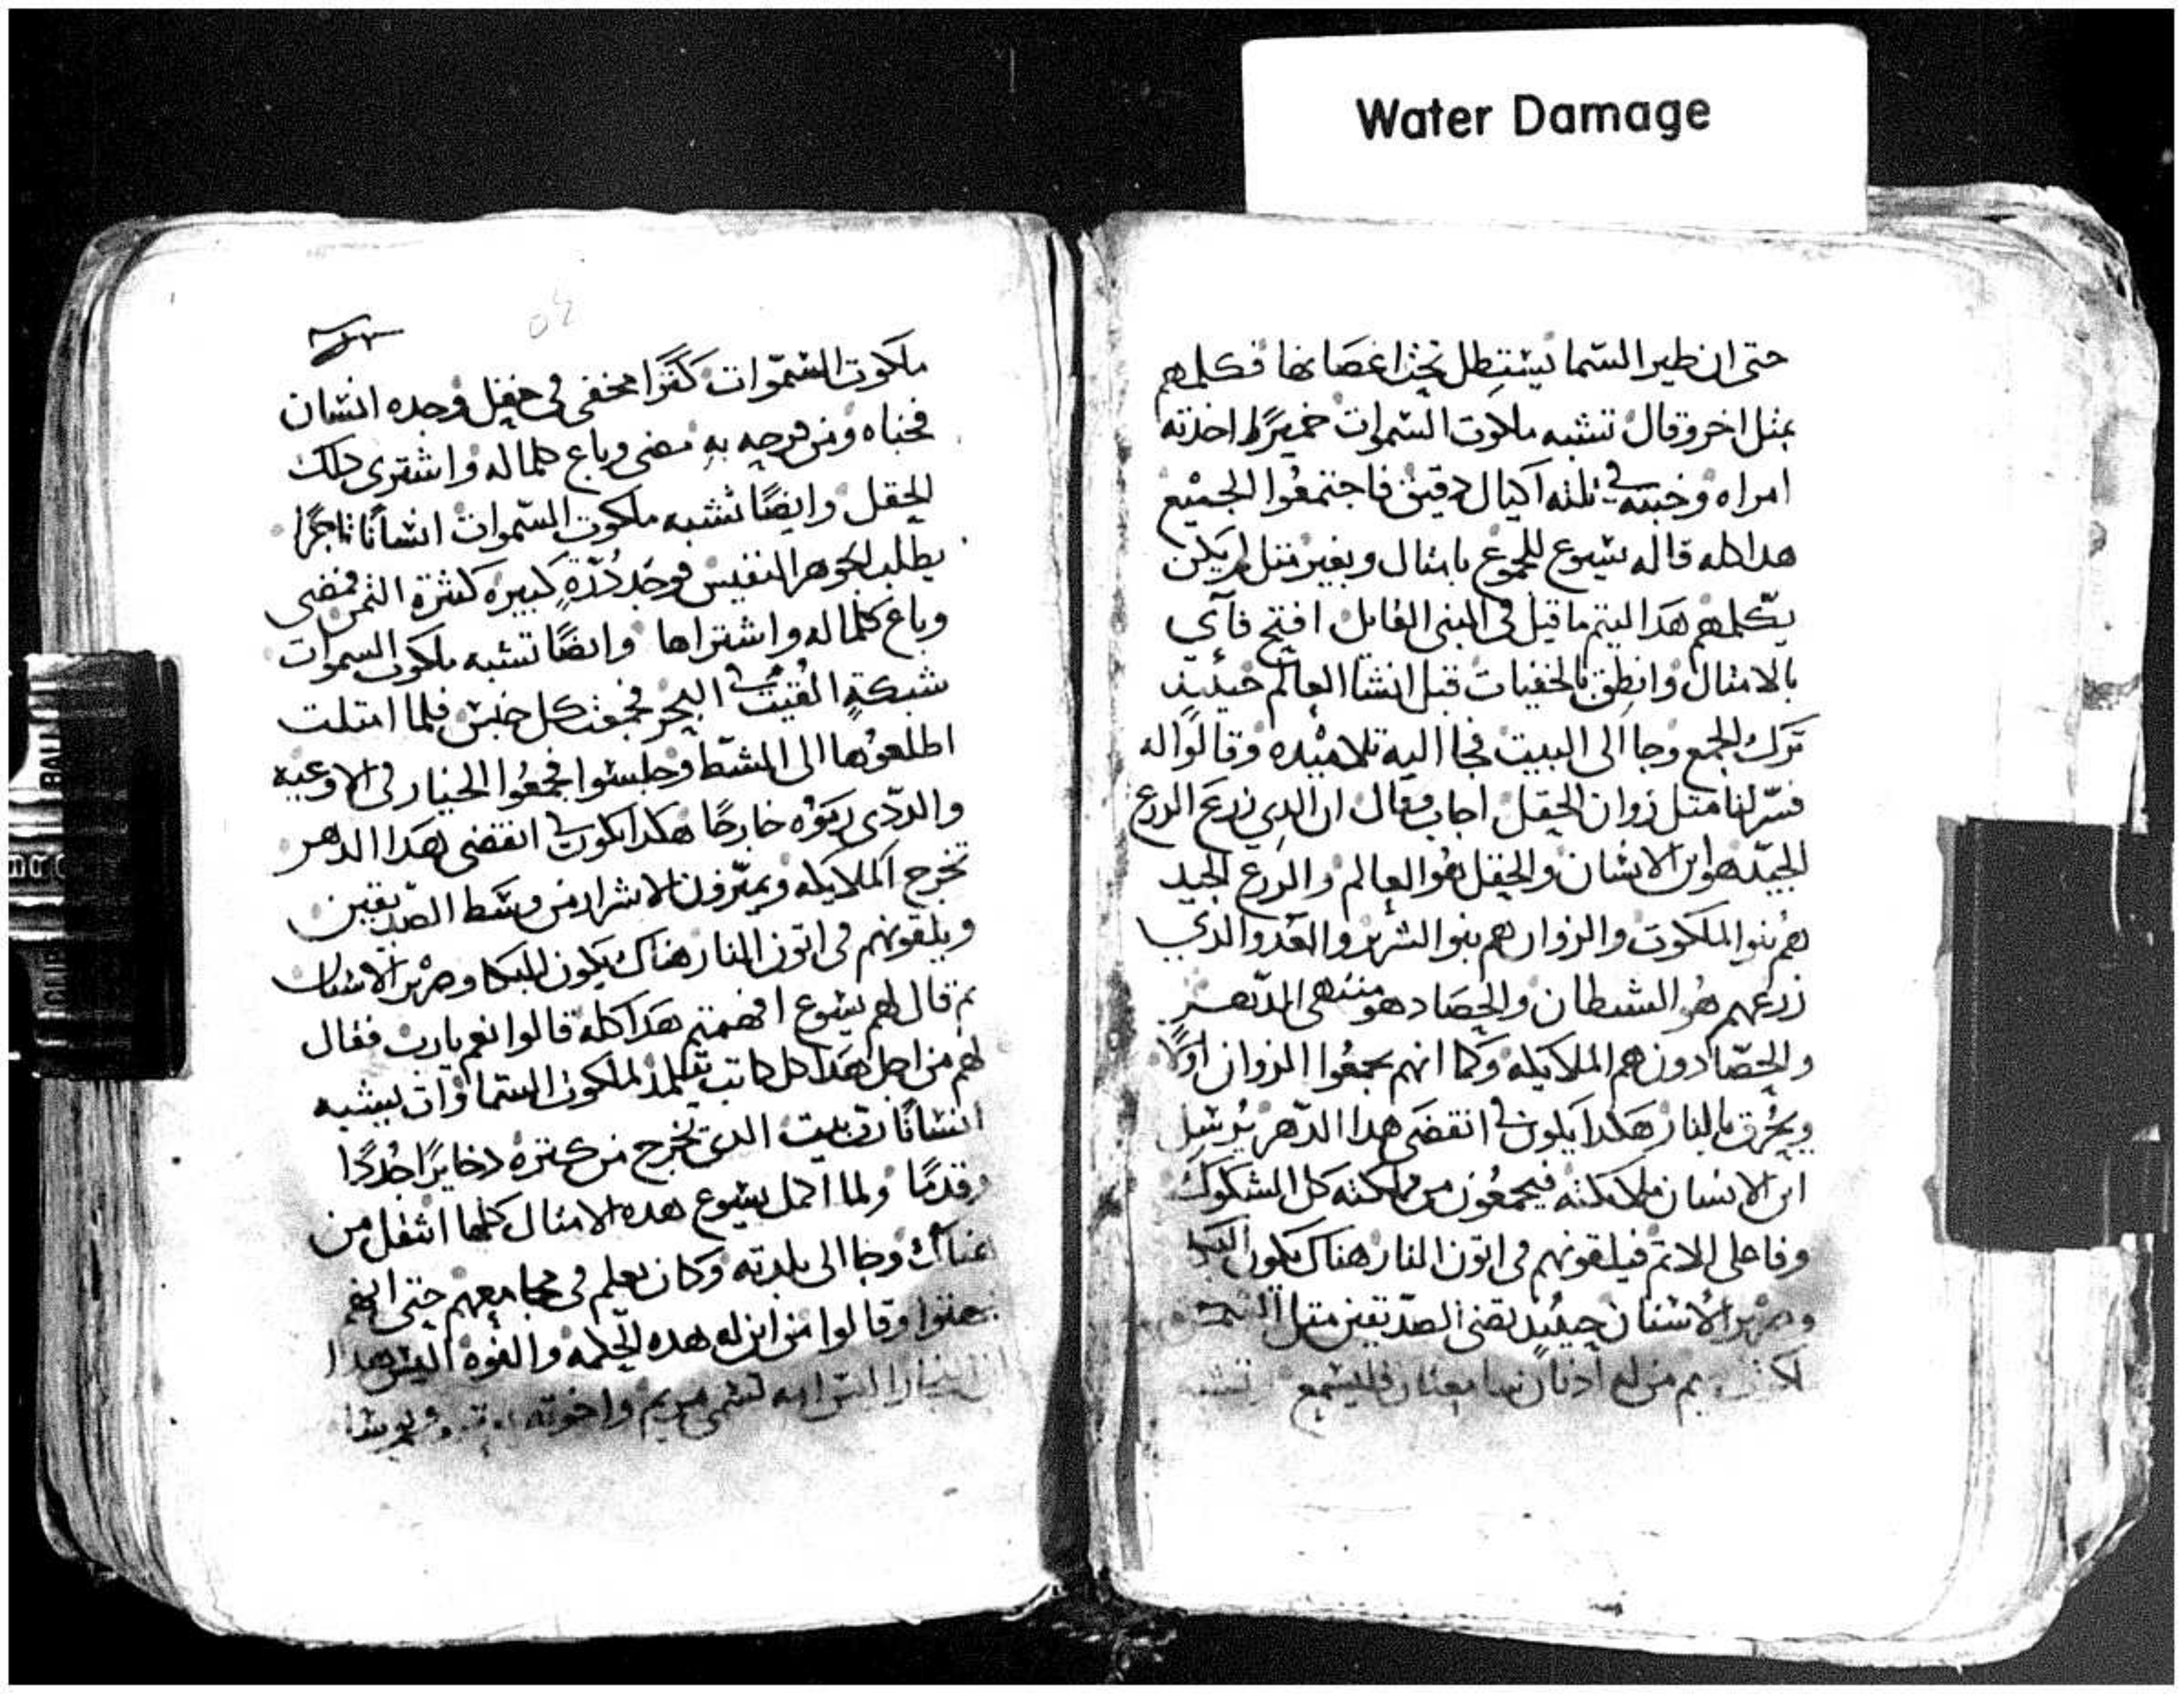 Water Damage
حتى ان طير السما يستطل تحت اغصانها فكلمهم
بمثل اخر وقال تشبه ملكوت السموات خميرًا اخدته
امراه وخبته في تلته اكيال دقيق فاجتمعوا الجميع
هدا كله قاله يسوع للجموع بامتال وبغير متل لم يكن
يكلمهم هدا ليتم ما قيل في النبي القايل افتح فاي
بالامتال وانطق بالخفيات قبل انشا العالم حينيد
ترك الجمع وجا الى البيت فجا اليه تلاميده وقالوا له
فسر لنا متل زوان الحقل اجاب فقال ان الدي زرع الزرع
الجيد هو ابن الانسان والحقل هو العالم والزرع الجيد
هم بنوا الملكوت والزوان هم بنوا الشرير والعدو الدي
زرعهم هو الشيطان والحصاد هو منتهى الدهر
والحصادون هم الملايكه وكما انهم يجمعوا الزوان اولًا
ويحرق بالنار هكدا يكون في انقضى هدا الدهر يرسل
ابن الانسان ملايكته فيجمعون من مملكته كل الشكوك
وفاعلى الاتم فيلقونهم في اتون النار هناك يكون البكا
وصرير الاسنان حينيد يضى الصديقين متل الشمس في
من له ادنان سامعتان فليسمع تشبه
ملكوت السموات كنزًا مخفى في حقل وجده انسان
فخباه ومن فرحه به مضى وباع كلما له واشترى دلك
الحقل وايضًا تشبه ملكوت السموات انسانًا تاجرًا
يطلب الجوهر النفيس فوجد درةٍ كبيرة كتيرة التمن فمضى
وباع كلما له واشتراها وايضًا تشبه ملكوت السموات
شبكةٍ القيت في البحر فجمعت كل جنس فلما امتلت
اطلعوها الى الشط وجلسوا فجمعوا الخيار في الاوعيه
والردى رموه خارجًا هكدا يكون في انقضى هدا الدهر
تخرج الملايكه ويميزون الاشرار من وسط الصديقين
ويلقونهم في اتون النار هناك يكون البكا وصرير الاسنان
تم قال لهم يسوع افهمتم هدا كله قالوا نعم يارب فقال
لهم من اجل هدا كل كاتب تتلمد لملكوت السماوات يشبه
انسانًا رب بيت الدي تخرج من كنزه دخايرًا جددًا
وقدمًا ولما اكمل يسوع هده الامتال كلها انتقل من
هناك وجا الى بلدته وكان يعلم في مجامعهم حتى انهم
بهتوا وقالوا من اين له هده الحكمه والقوه اليس هدا
ابن النجار اليس امه تسمى مريم واخوته ويوسا